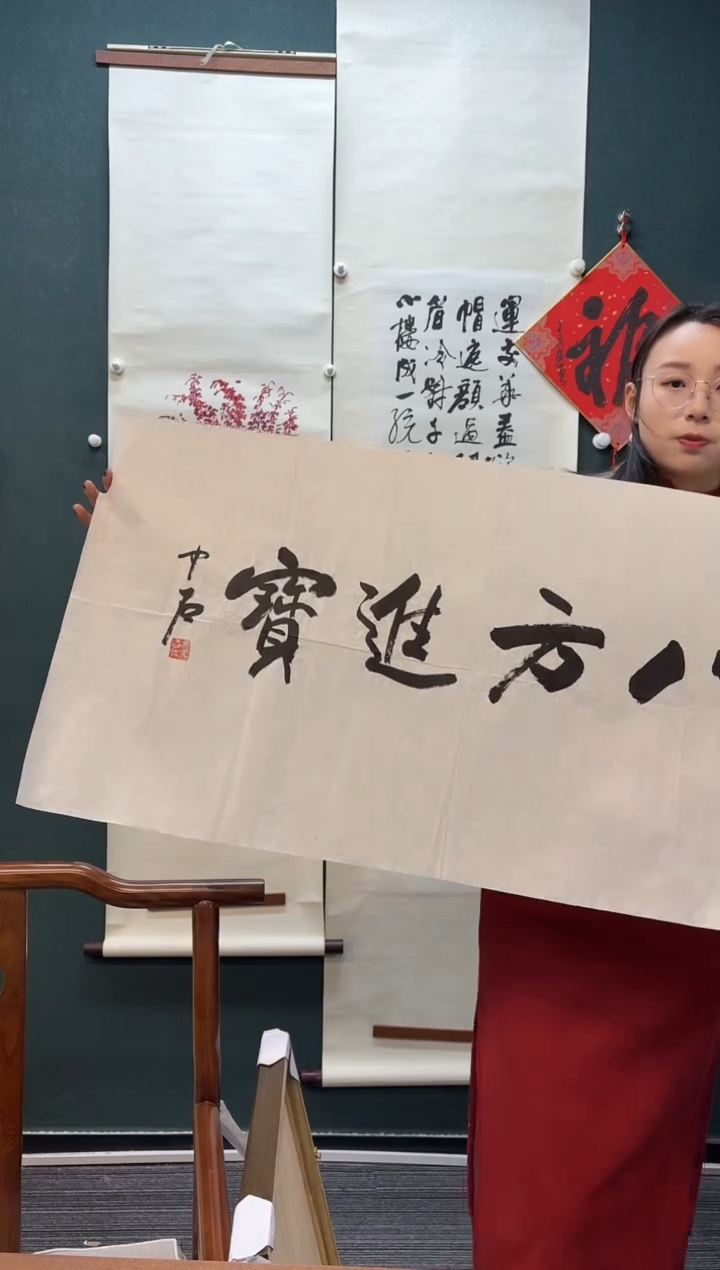 八方進寶
中石
運交華蓋
帽遮顏過
眉冷對千
小樓成一統
福